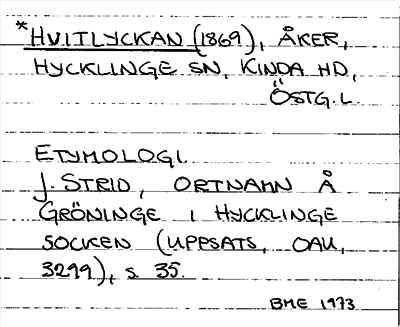 *HVITLYCKAN (1869), ÅKER,
HYCKLINGE SN, KINDA HD,
ÖSTG. L.
ETYMOLOGI.
J. STRID, ORTNAMN Å
GRÖNINGE I HYCKLINGE
SOCKEN (UPPSATS, OAU,
3299), s 35.
BME 1973